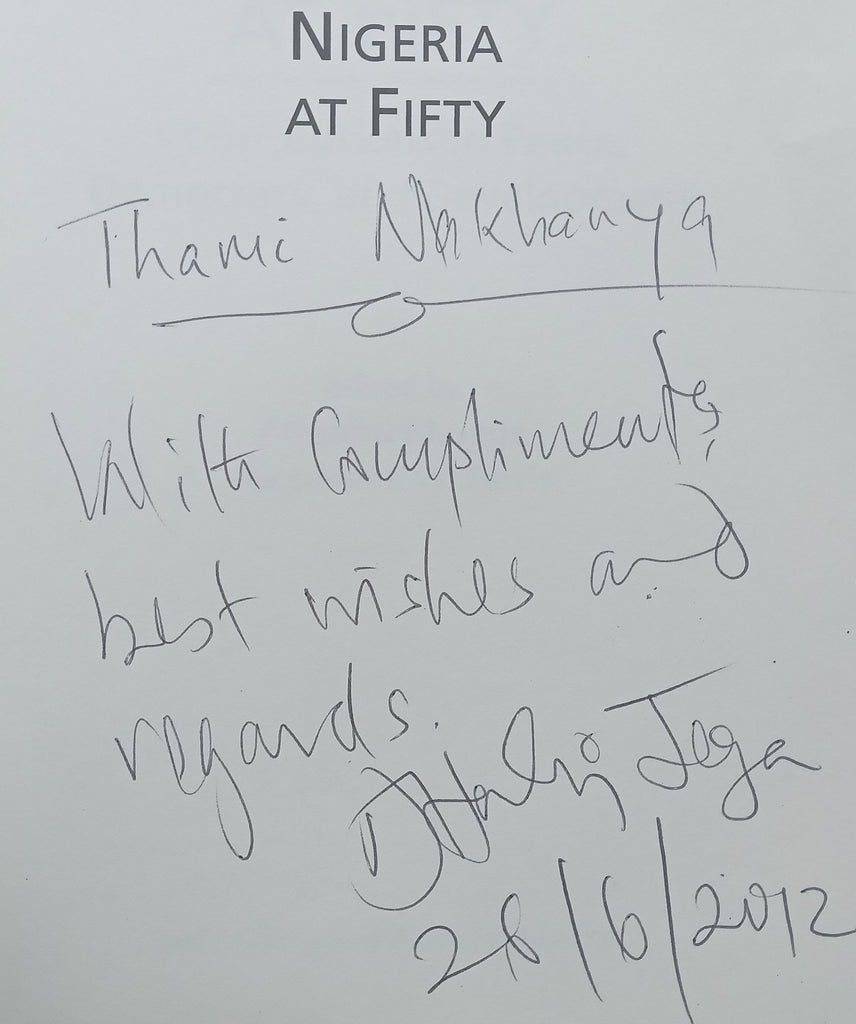 NIGERIA
AT FIFTY
Thami Nkakhanya
With Compliments,
best wishes and
regards.
Jega
28/6/2012